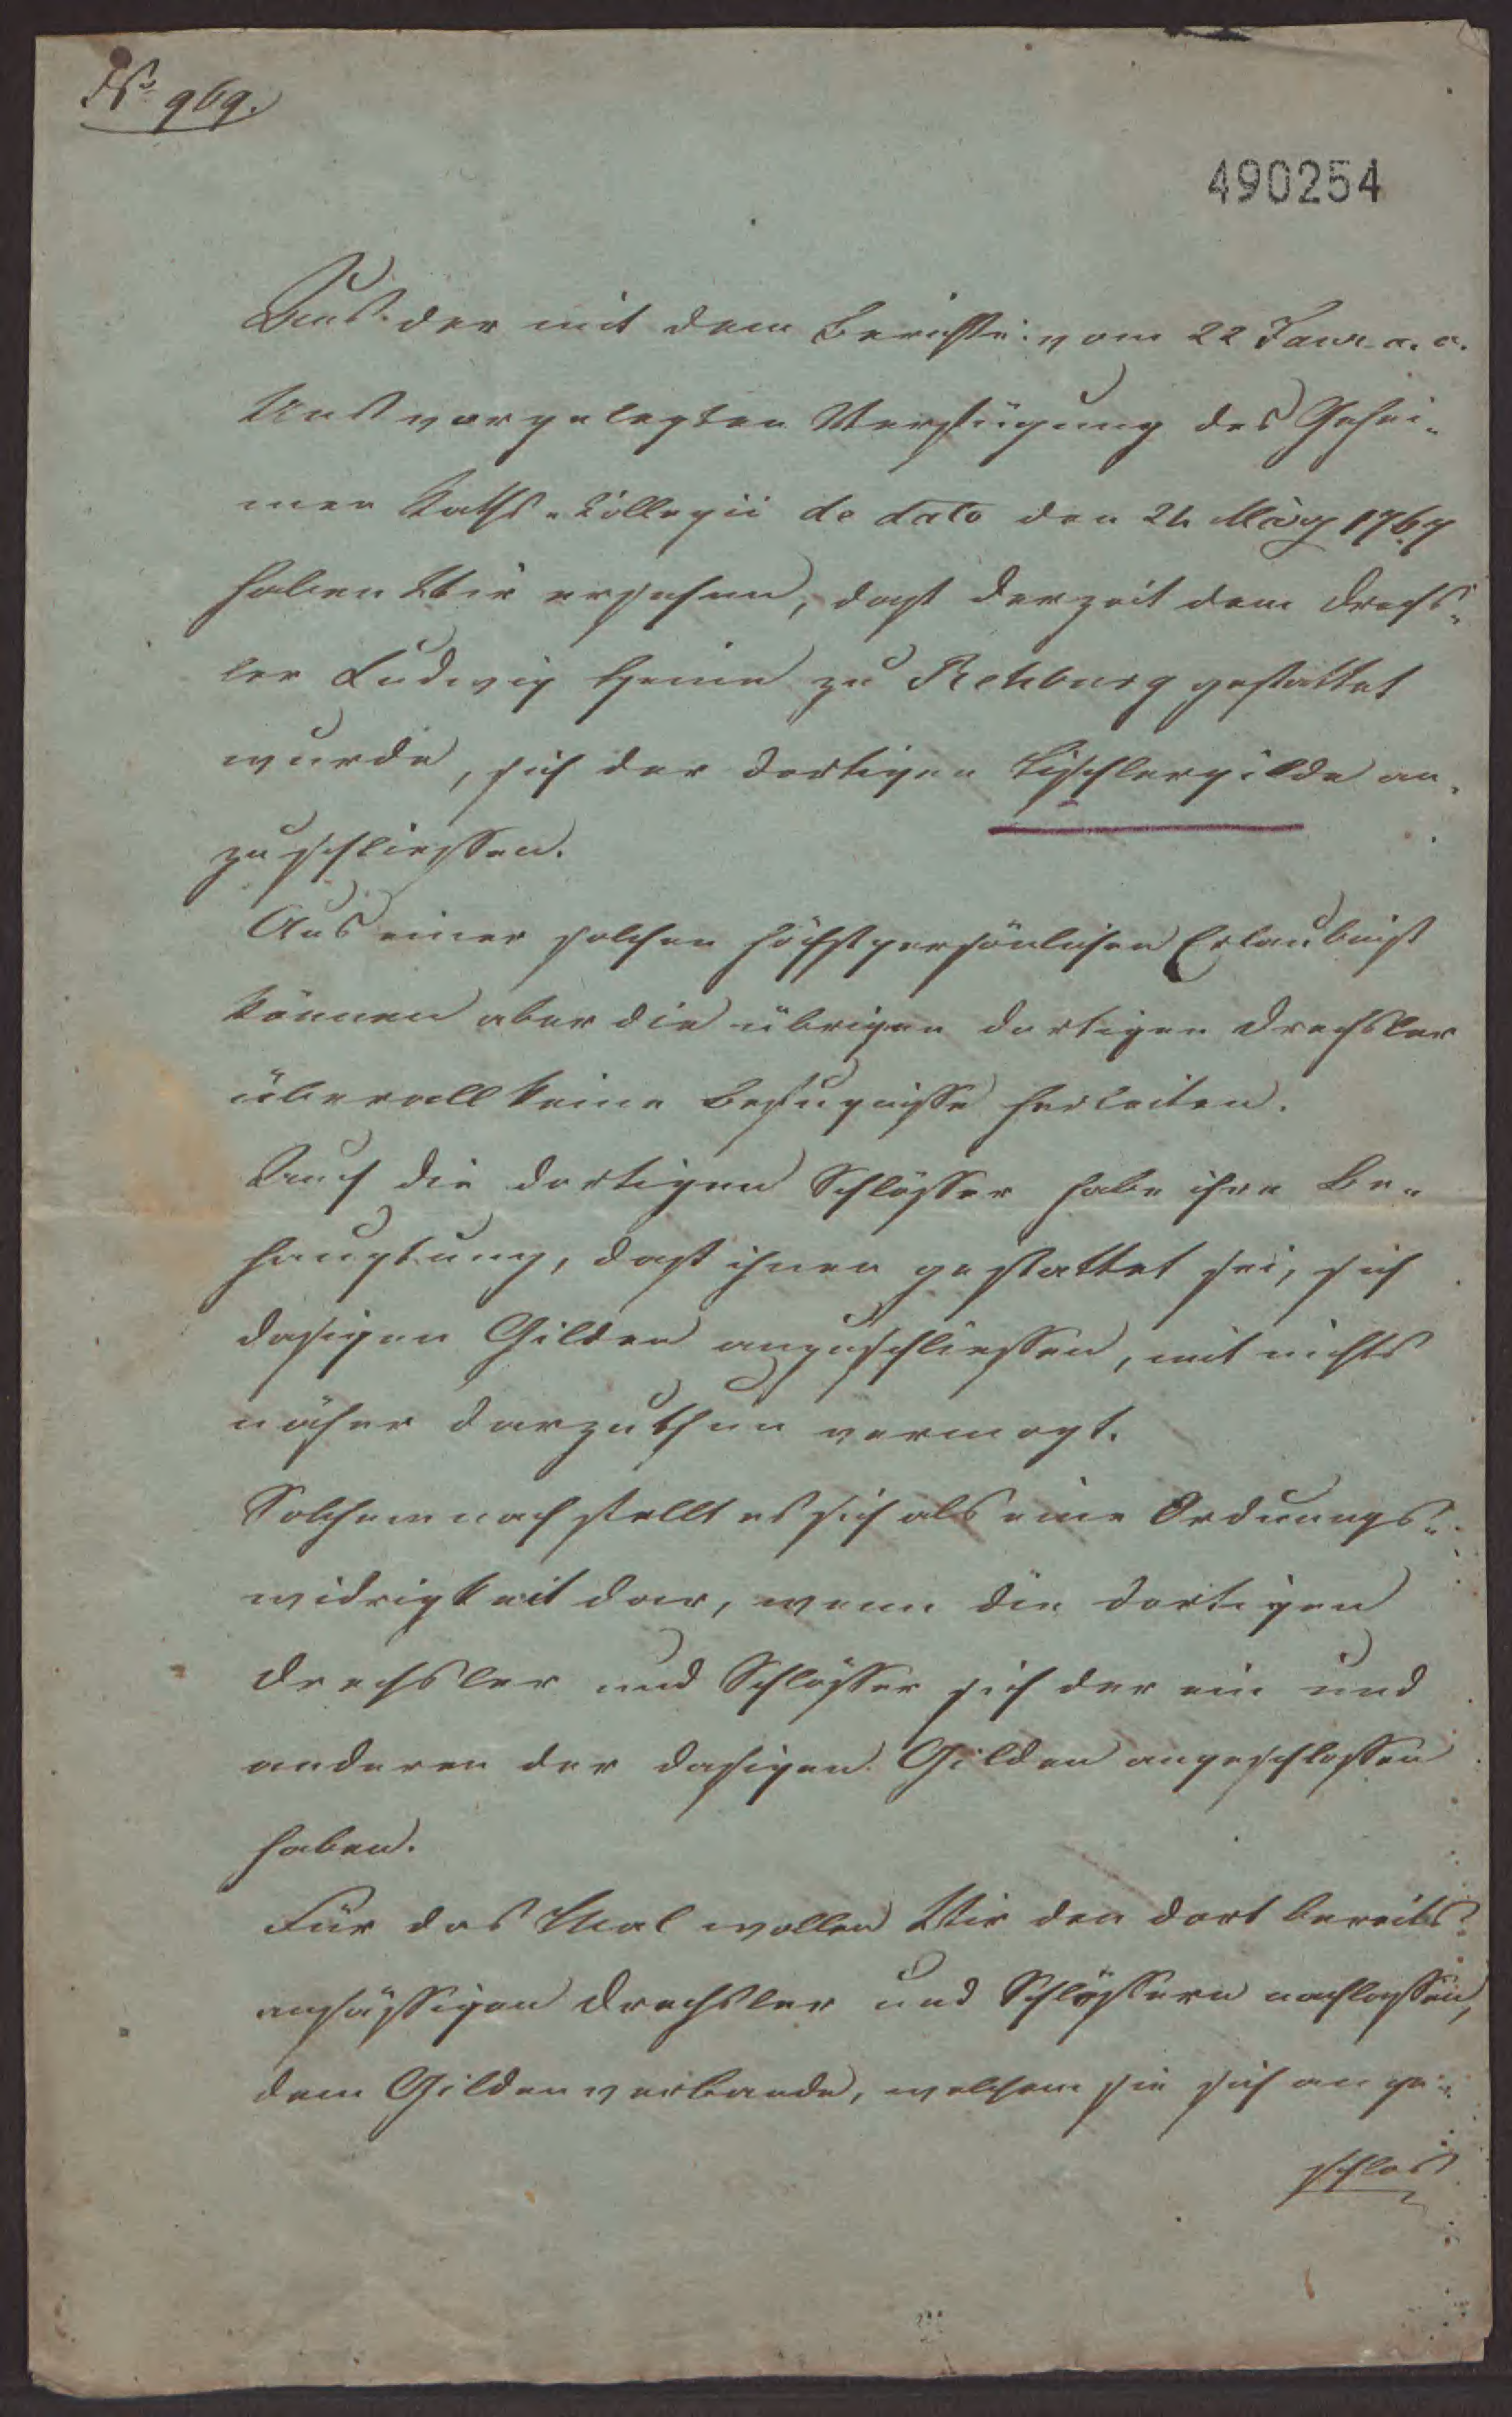 No 969.
490254
Aus der mit dem Berichte vom 22 Janr. a. c.
Uns vorgelegten Verfügung des Gehei-
men Raths-Collegii de dato den 24 März 1767
haben Wir ersehen, daß derzeit dem Drechs-
ler Ludwig Heine zu Rehburg gestattet
wurde, sich der dortigen Tischlergilde an-
zuschliessen.
Aus einer solchen höchstpersönlichen Erlaubniß
können aber die übrigen dortigen Drechsler
überall keine Befugnisse herleiten.
Auch die dortigen Schlösser habe ihre Be-
hauptung, daß ihnen gestattet sei, sich
dasigen Gilden anzuschliessen, mit nichts
näher darzuthun vermogt.
Solchemnach stellt es sich als eine Ordnungs-
widrigkeit dar, wenn die dortigen
Drechsler und Schlösser sich der ein und
anderen der dasigen Gilden angeschlossen
haben.
Für das Mal wollen Wir den dort bereits
ansässigen Drechsler und Schlössern nachlassen,
dem Gildenverbande, welchem sie sich ange-
schlos